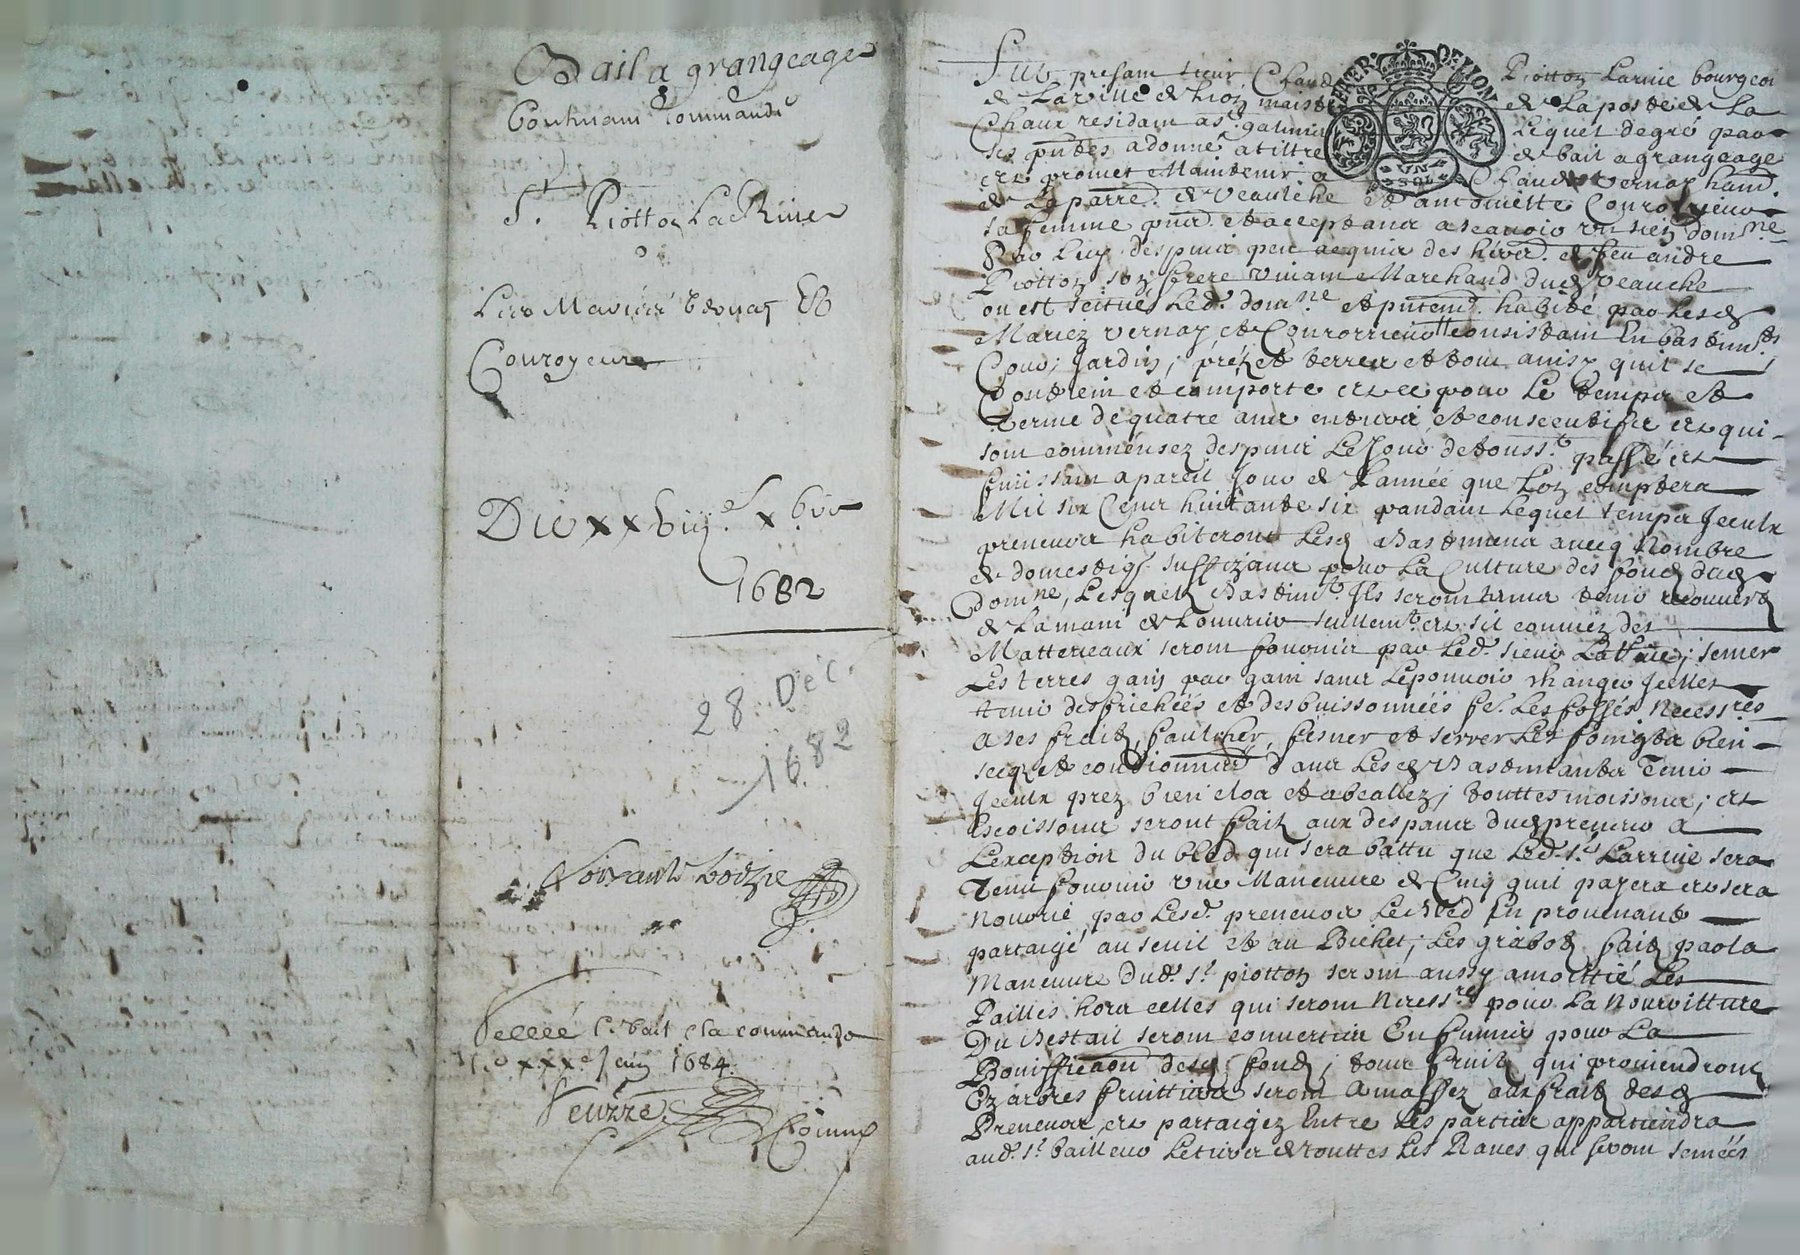 Bail a grangeage
Contenant commande
Sr. Piotton LaRiue
Les Mariés Vernay Et
Couroyeur
Du xxviije xbre
1682
28 Dec.
1682
le bail & la commande
xxxe Juin 1684.
GENER DE LYON
SOLS
Fut present sieur Claude Piotton Lariue bourgeois
de la ville de Lion maistre de la poste de La
Chaux residant a St. galmier Lequel de gré pour
ses a donné a tiltre de bail a grangeage
et promet Maintenir a Claude Vernay habit.
de La parre. de Veauche et antoinette Couroyeur
sa femme et acceptans a scauoir un sien domne
Par Luy despuis peu acquis des herit. de feu andre
Piotton son frere viuant Marchand dud Veauche
ou est scitué Led. domne et habité par lesd
Mariez vernay et consistant En bastimts
Cour, Jardin, préz et terres et tout ainsy quil se
Contient et comporte et ce pour Le temps et
terme de quatre ans entiers et consecutifs et qui
sont commensez despuis Le Jour de Touss.t passé et
finissant a pareil Jour de L'année que Lon comptera
Mil six Cens huitante six pandant Lequel temps Iceulx
preneurs habiteront Lesd Bastimens auecq Nombre
de domestiq suffizans pour La Culture des fonds dud
domne, Lesquelz Bastimts Ils seront tenus tenir recouuertz
de La main de Louurier seullemt. et sil conuient des
Matteriaux seront fournis par Led. sieur LaRiue; semer
Les terres gain par gain sans Le pouuoir changer Icelles
tenir desfrichées et desbuissonnées fe. Les fossés Necessres
a ses fraitz faulcher, fesner et serrer Les foings bien
secqz et conditionnés dans Lesd Bastimants Tenir
Iceulx prez bien clos et touttes moissons, et
Escoissons seront faitz aux despans dud preneur a
Lexception du bled qui sera battu que Led. sr. Larriue sera
Tenu fournir une Maneuure de Cinq quil payera et sera
Nourrie par Lesd. preneurs Le Bled En prouenant
partaigé au seuil et au Bichet; Les grabotz faitz par la
Maneuure dud. sr. piotton seront aussy a moittié Les
Pailles hors celles qui seront Necessre pour La Nourritture
Du Bestail seront conuerties En fumier pour La
Bonifficaon desd fondz; tous fruitz qui prouiendront
Ez arbres fruittiers seront amassez aux fraitz desd
Preneurs et partaigez Entre Les parties appartiendra
aud. sr. bailleur Le tiers de touttes Les Raues qui seront semées